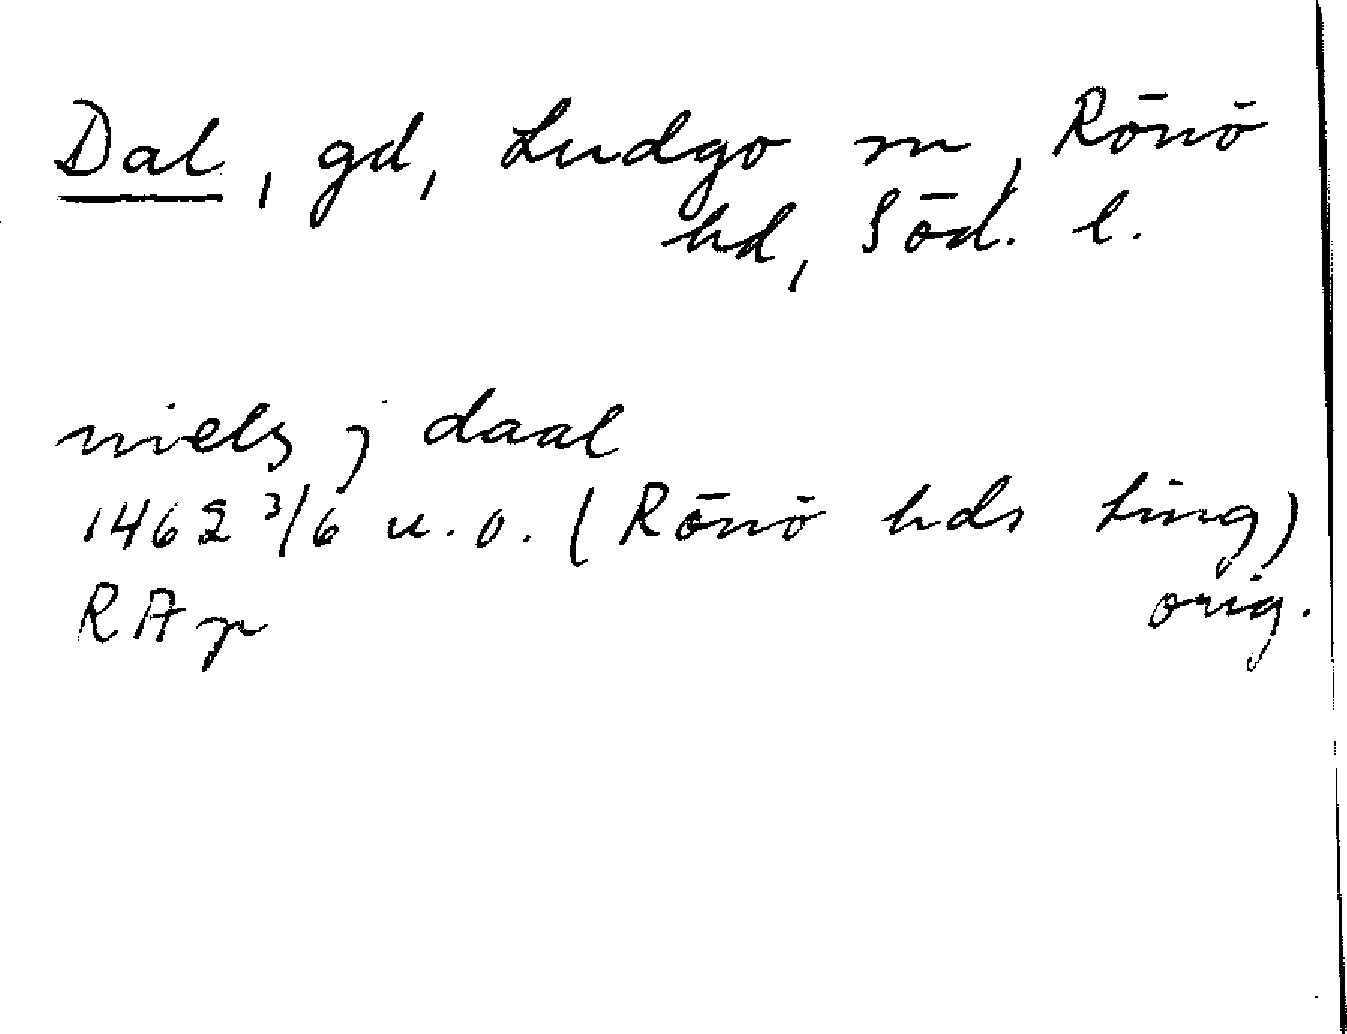 Dal, gd, Ludgo sn, Rönö
hd, Söd. l.
niels j daal
1462 3/6 u.o. (Rönö hds ting)
RAp orig.